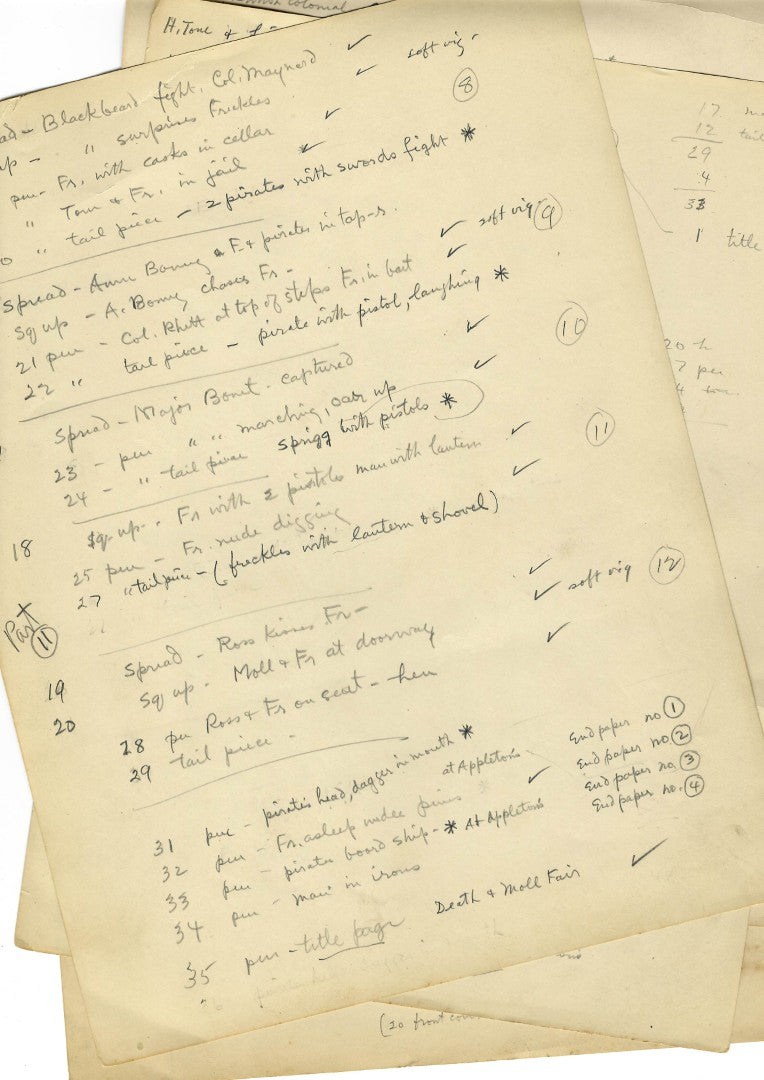 H. Tome & f
ad - Blackbeard fight. Col. Maynard ✓ soft vig -
up - " surprises Freckles ✓ (8)
pen - Fr. with casks in cellar ✓
" Tom & Fr. in jail ✓
0 " tail piece - 2 pirates with swords fight *
Spread - Ann Bonney & F & pirates in tap-r. ✓ soft vig - (9)
Sq up - A. Bonney chases Fr - ✓
21 pen - Col. Rhett at top of steps Fr. in boat
22 " tail piece - pirate with pistol, laughing *
Spread - Major Bonet - captured ✓ (10)
23 - pen " " marching, oar up ✓
24 - " tail piece Sprigg with pistols *
18 Sq up - Fr with 2 pistols man with lantern ✓ (11)
25 pen - Fr. nude digging ✓
27 " tail piece - (freckles with lantern & shovel)
Part (11)
19 Spread - Ross kisses Fr - ✓ (12)
20 Sq up - Moll & Fr at doorway ✓ soft vig
28 pen Ross & Fr on seat - hen ✓
29 tail piece -
31 pen - pirates head, dagger in mouth * End paper no (1)
32 pen - Fr. asleep under pines * at Appleton's End paper no (2)
33 pen - pirates board ship - * At Appleton's ✓ End paper no. (3)
34 pen - man in irons End paper no. (4)
35 pen - title page Death & Moll Fair ✓
17
12 tail
29
4
33
1 title
20 - h
7 pen
4
(20 front cov